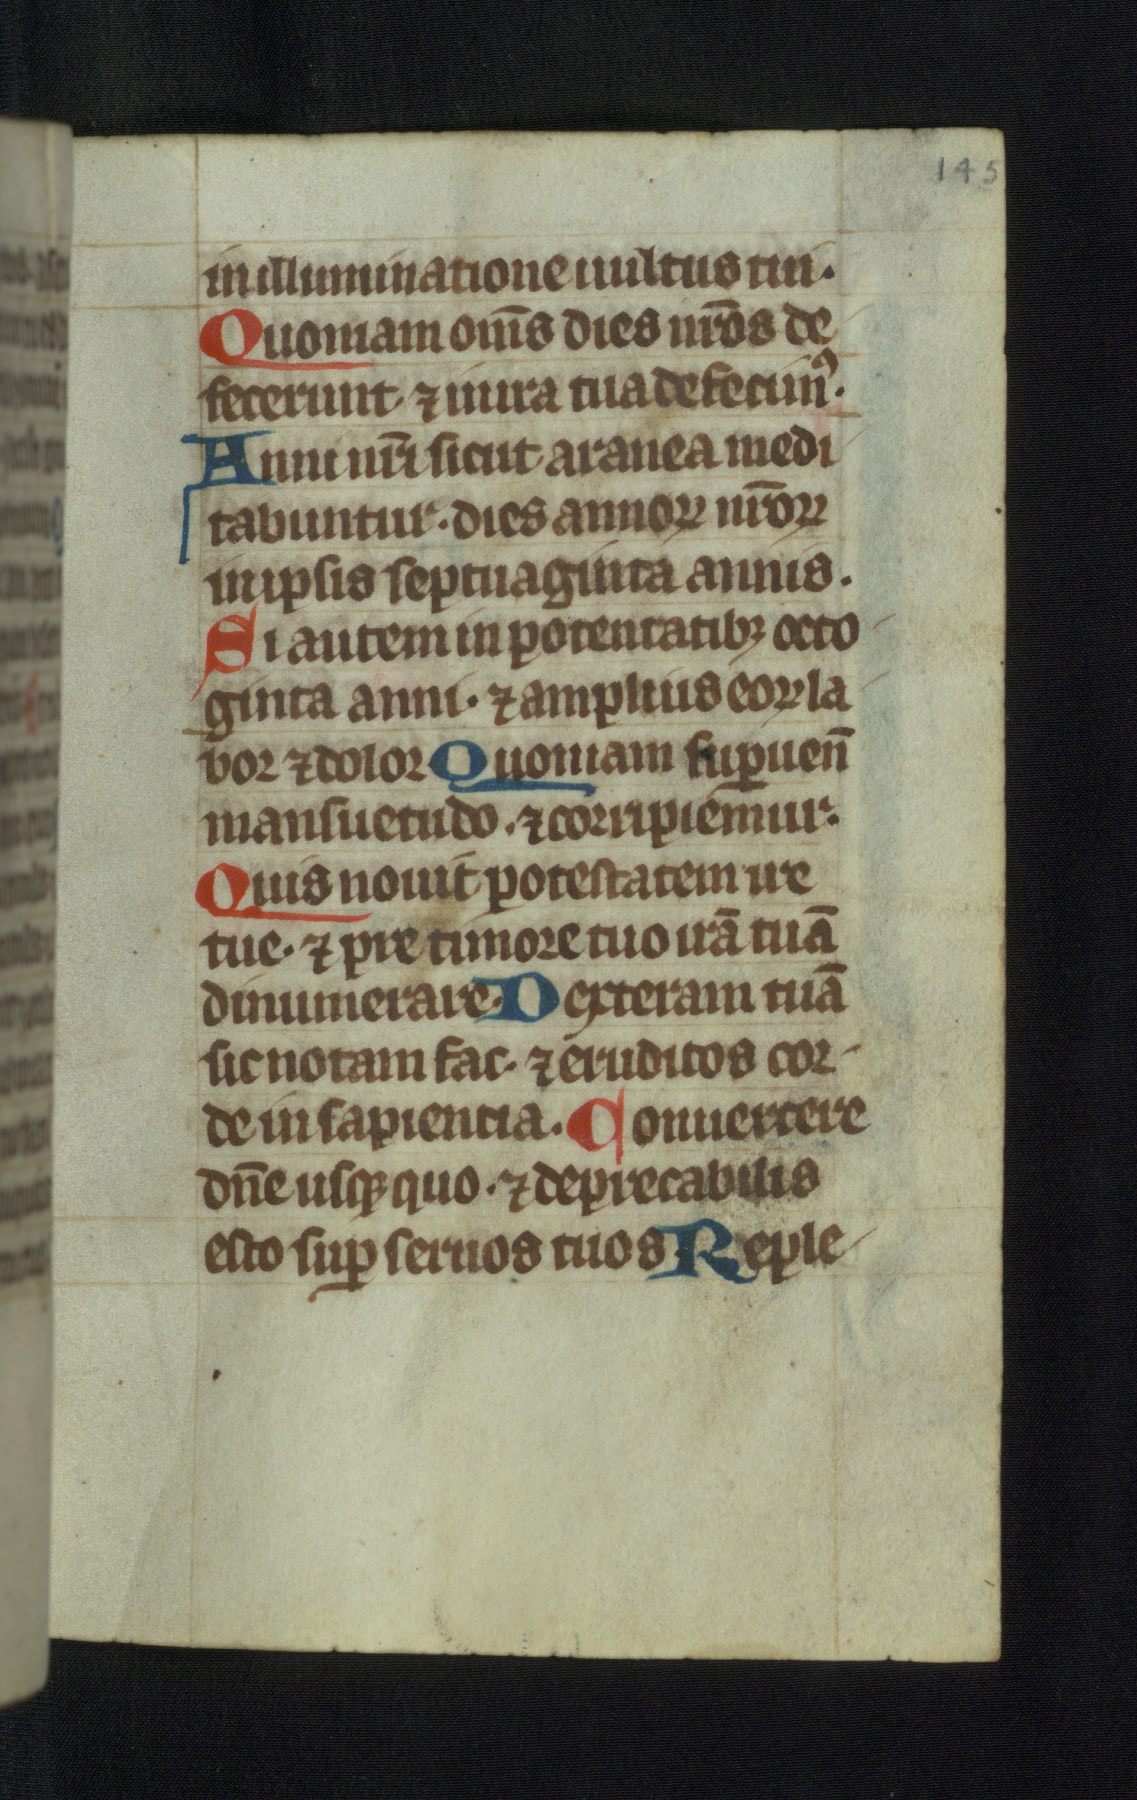 145
in illuminatione uultus tui.
Quoniam om̅s dies nr̅os de
fecerunt ⁊ in ira tua defecimꝰ.
Anni nr̅i sicut aranea medi
tabuntur. dies annoꝝ nr̅oꝝ
in ipsis septuaginta annis.
Si autem in potentatibꝫ octo
ginta anni. ⁊ amplius eoꝝ la
bor ⁊ dolor Quoniam suꝑuen̅
mansuetudo. ⁊ corripiemur.
Quis nouit potestatem ire
tue. ⁊ pre timore tuo irā tuā
dinumerare. Dexteram tuā
sic notam fac. ⁊ eruditos cor-
de in sapientia. Conuertere
dn̅e usqꝫ quo. ⁊ deprecabilis
esto suꝑ seruos tuos. Reple